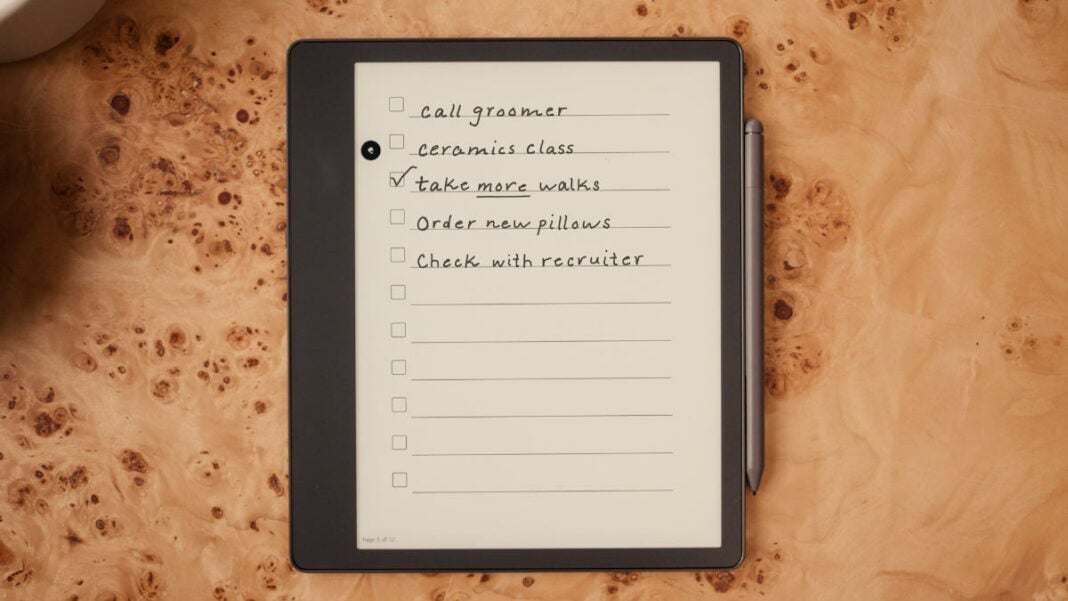 call groomer
ceramics class
take more walks
Order new pillows
Check with recruiter
Page 5 of 12